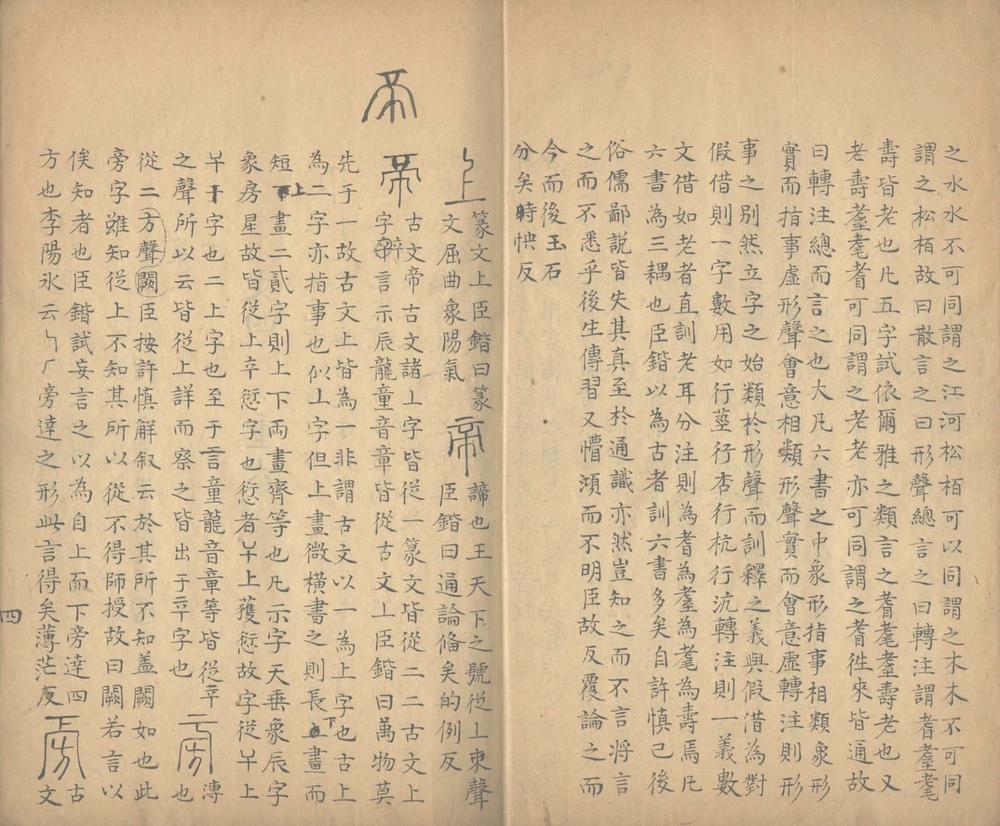 之水水不可同謂之江河松栢可以同謂之木木不可同
謂之松栢故曰散言之曰形聲總言之曰轉注謂耆耋耄
壽皆老也凡五字試依爾雅之類言之耆耄耋壽老也又
老壽耋耄耆可同謂之老老亦可同謂之耆徃來皆通故
曰轉注總而言之也大凡六書之中象形指事相類象形
實而指事虛形聲會意相類形聲實而會意虛轉注則形
事之别然立字之始類於形聲而訓釋之義與假借為對
假借則一字數用如行莖行杏行杭行沆轉注則一義數
文借如老者直訓老耳分注則為耆為耋為耄為壽焉凡
六書為三耦也臣鍇以為古者訓六書多矣自許慎已後
俗儒鄙說皆失其真至於通識亦然豈知之而不言將言
之而不悉乎後生傳習又懵澒而不明臣故反覆論之而
今而後玉石
分矣時怏反
篆文上臣鍇曰篆
文屈曲象陽氣
帝
諦也王天下之號從丄朿聲
臣鍇曰通論僃矣的例反
帝
古文帝古文諸丄字皆從一篆文皆從二二古文上
字辛言示辰龍童音章皆從古文上臣鍇曰萬物莫
先于一故古文上皆為一非謂古文以一為上字也古上
為二字亦指事也似丄字但上畫微橫書之則長上畫而
短下畫二貳字則上下兩畫齊等也凡示字天垂象辰字
象房星故皆從上辛愆字也愆者𢆉上獲愆故字從𢆉上
𢆉干字也二上字也至于言童龍音章等皆從䇂
之聲所以云皆從上詳而察之皆出于䇂字也
溥也
從二方聲闕臣按許慎解叙云於其所不知盖闕如也此
旁字雖知從上不知其所以從不得師授故曰闕若言以
俟知者也臣鍇試妄言之以為自上而下旁達四
方也李陽氷云旁達之形此言得矣薄茫反
古文
四